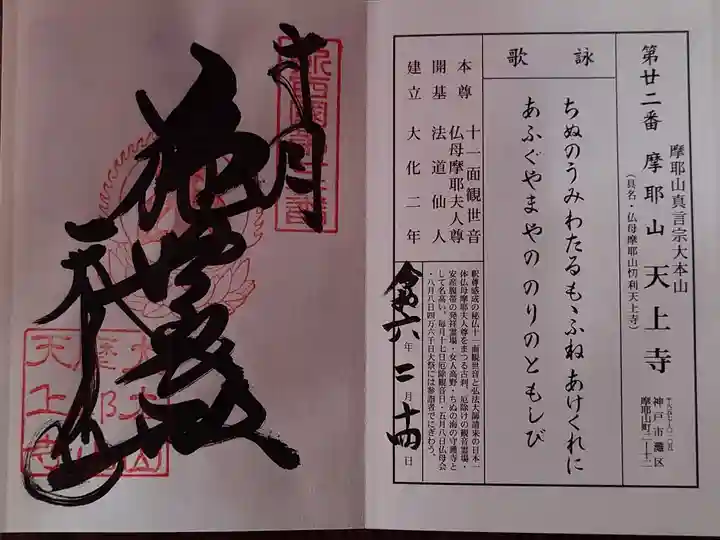 第廿二番 摩耶山 天上寺
摩耶山真言宗大本山
(具名・仏母摩耶山忉利天上寺)
神戸市灘区
摩耶山町二ー十二
詠歌
ちぬのうみわたるもゝふね あけくれに
あふぐやまやの のりのともしび
本尊 十一面観世音
仏母摩耶夫人尊
開基 法道仙人
建立 大化二年
釈尊感成の秘仏十一面観世音と弘法大師請来の日本一
体仏母摩耶夫人尊をまつる古刹。厄除けの観音霊場・
安産腹帯の発祥霊場・女人高野・ちぬの海の守護寺と
して名高い。毎月十七日厄除観音日・五月八日仏母会
・八月八日四万六千日大祭には参詣者でにぎわう。
令和六年二月十四日
奉拝
新西国第廿二番
天上寺
大本山
摩耶山
天上寺